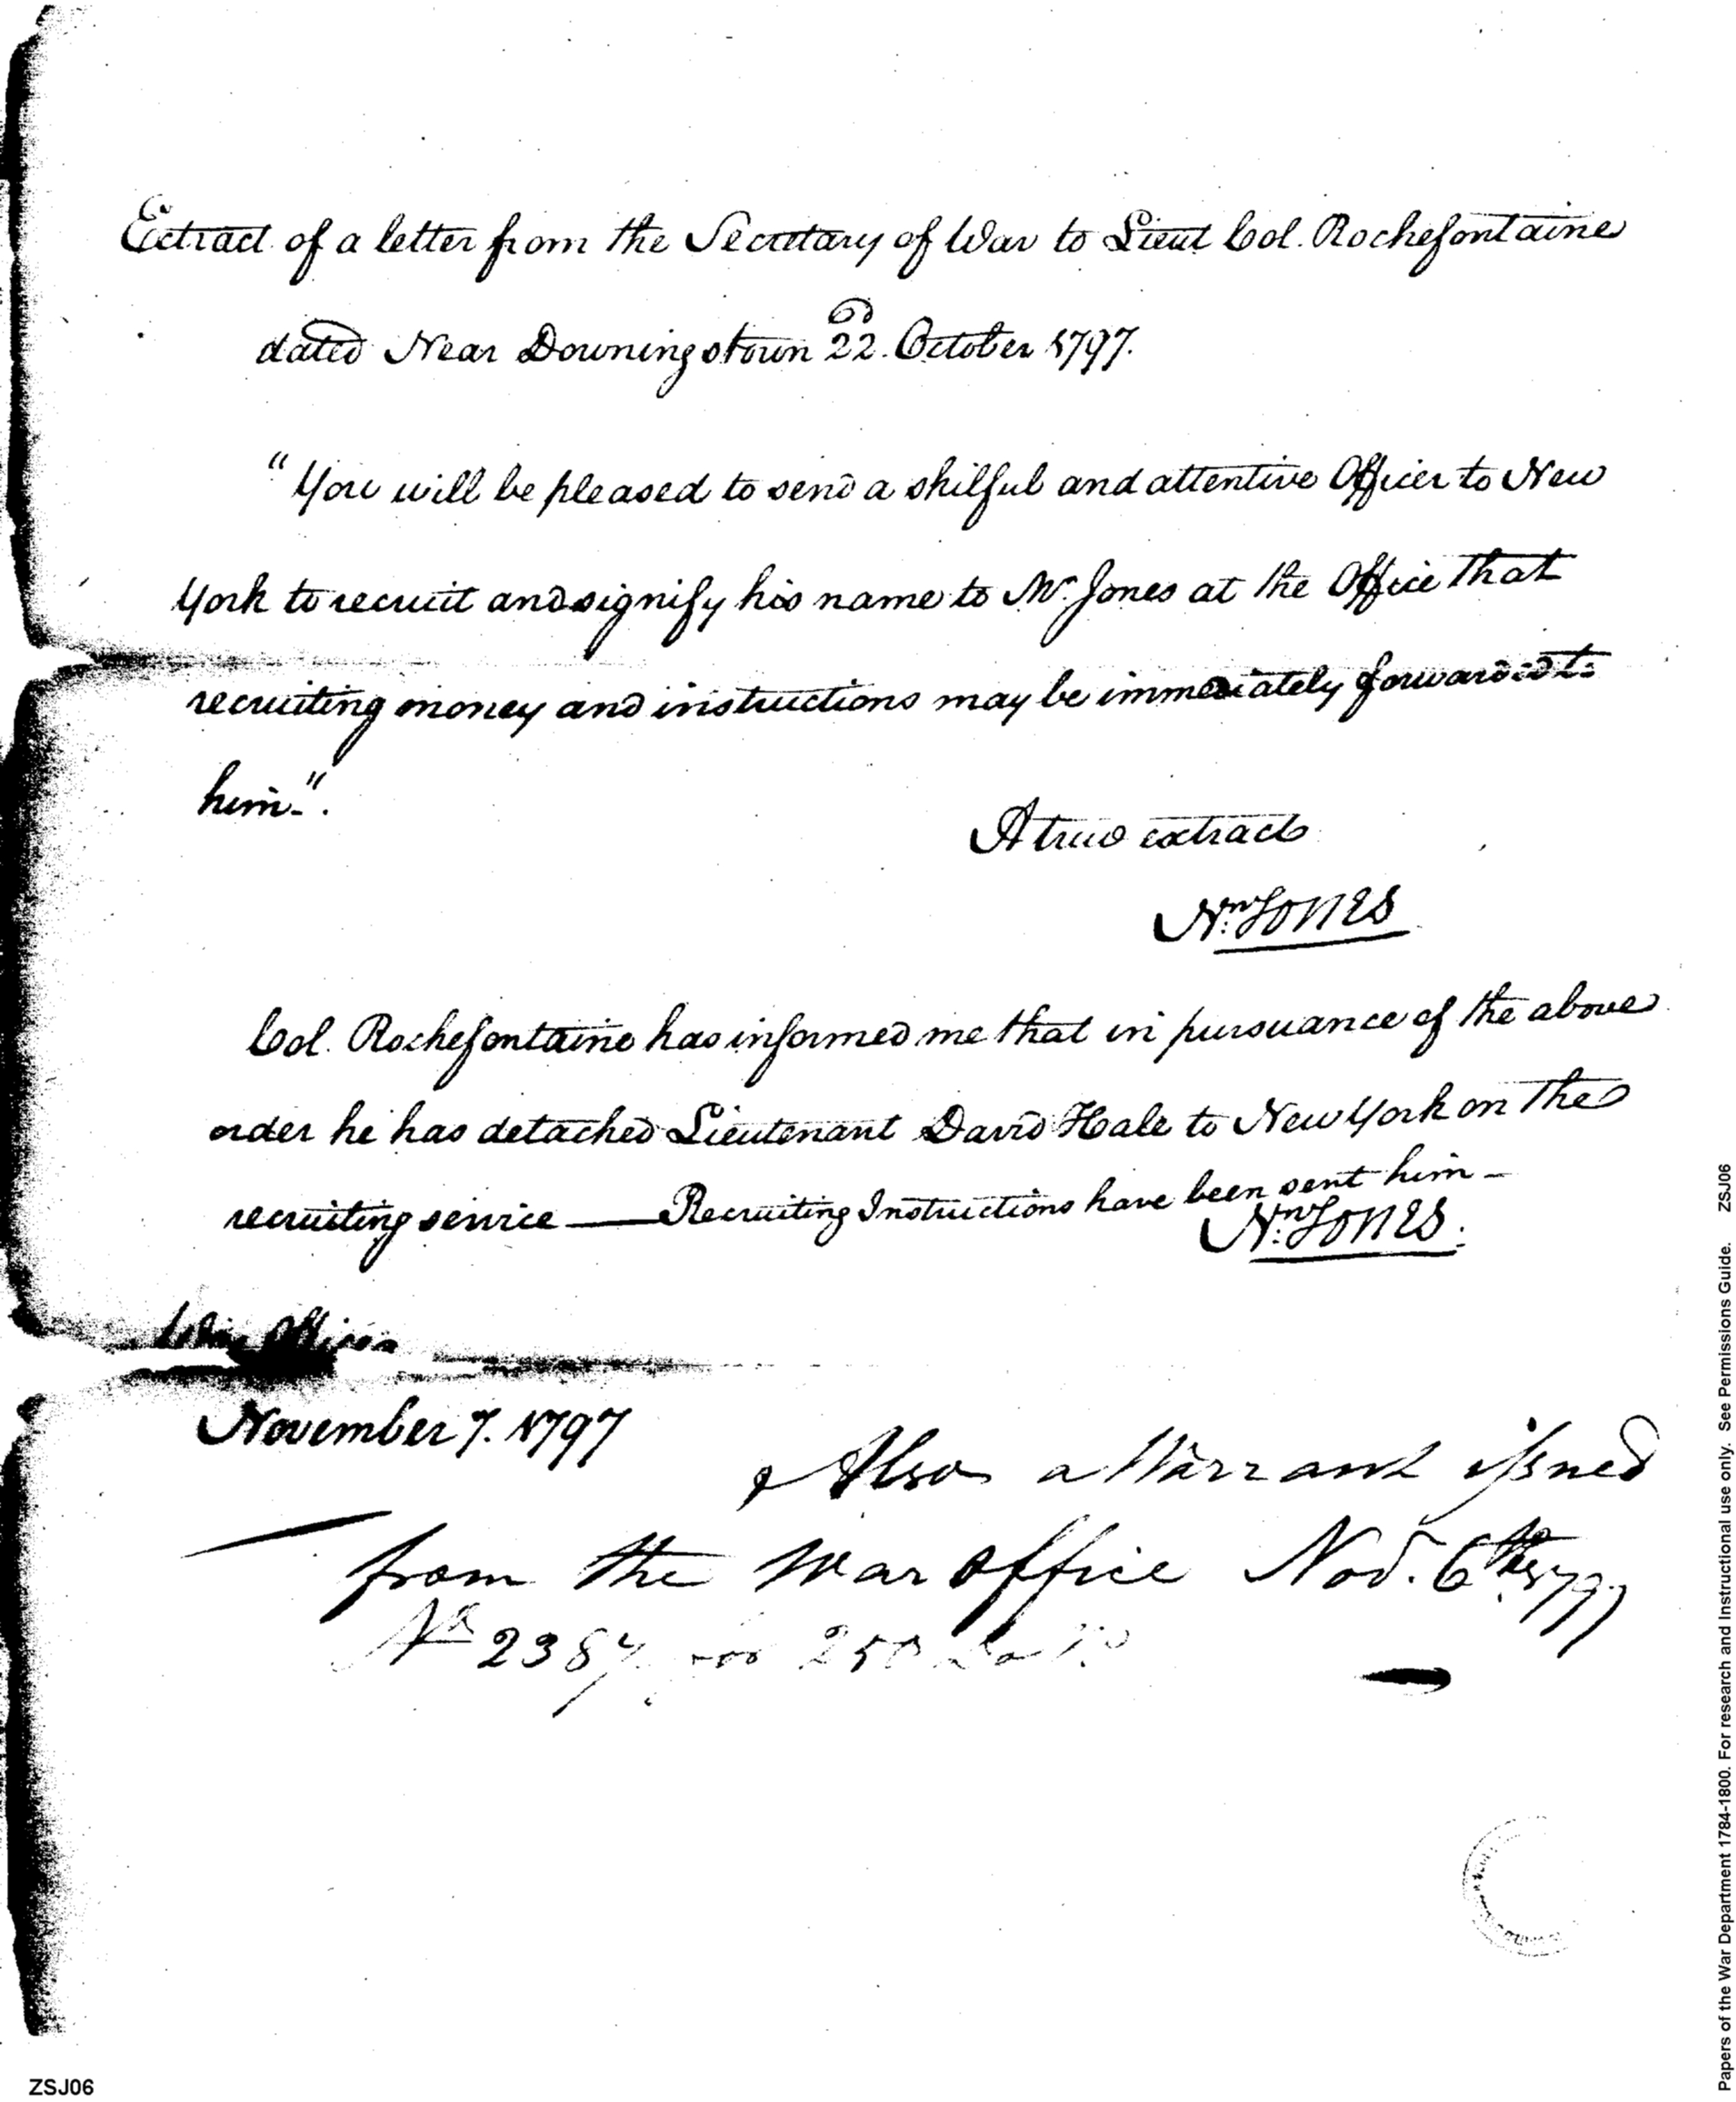 Extract of a letter from the Secretary of War to Lieut Col. Rochefontaine
dated Near Downingstown 22d. October 1797.
"You will be pleased to send a skilful and attentive Officer to New
York to recruit and signify his name to Mr. Jones at the Office that
recruiting money and instructions may be immediately forwarded to
him."
A true extract
Nn. Jones
Col. Rochefontaine has informed me that in pursuance of the above
order he has detached Lieutenant David Hale to New York on the
recruiting service — Recruiting Instructions have been sent him -
Nn. Jones.
War Office
November 7. 1797
Also a Warrant issued
from the War Office Nov. 6th 1797
No 2387 for 250 Dolls
ZSJ06
Papers of the War Department 1784-1800. For research and Instructional use only. See Permissions Guide. ZSJ06